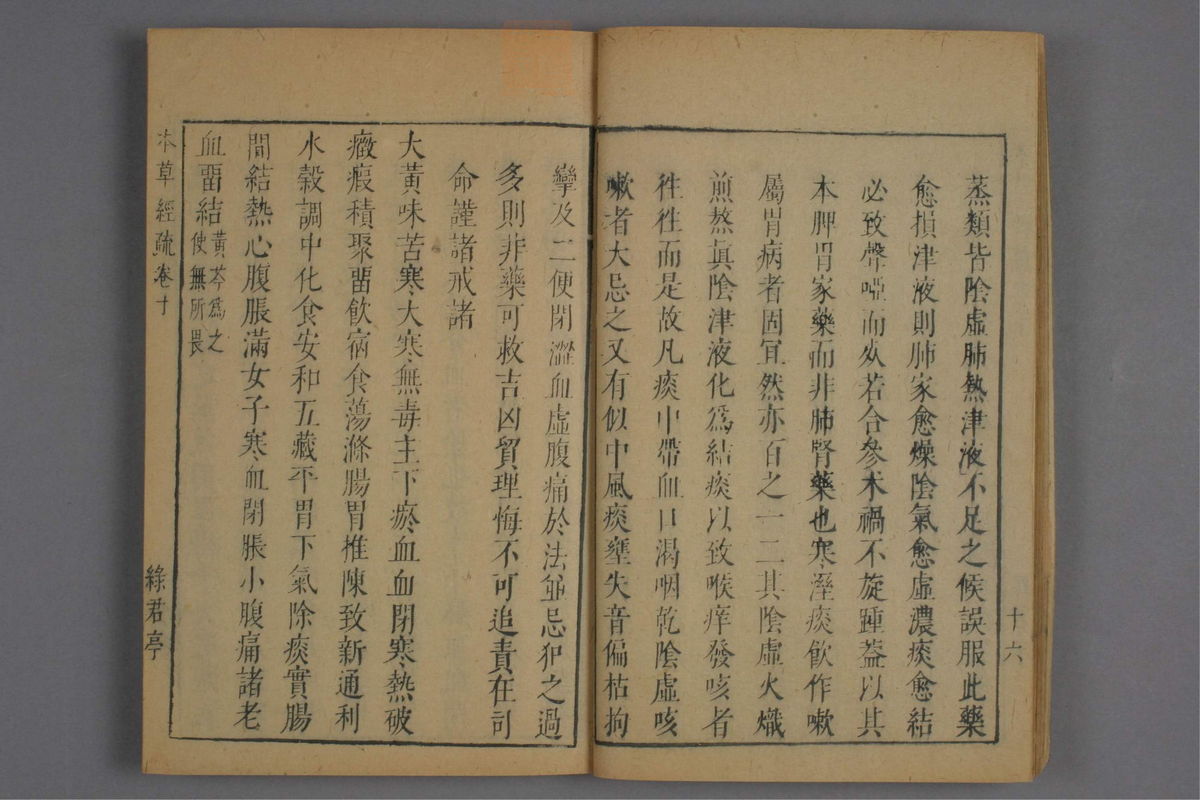 蒸類皆陰虛肺熱津液不足之候誤服此藥
愈損津液則肺家愈燥陰氣愈虛濃痰愈結
必致聲啞而死若合參术禍不旋踵葢以其
本脾胃家藥而非肺腎藥也寒溼痰飲作嗽
屬胃病者固宜然亦百之一二其陰虛火熾
煎熬眞陰津液化爲結痰以致喉痒發咳者
徃徃而是故凡痰中帶血口渴咽乾陰虛咳
嗽者大忌之又有似中風痰壅失音偏枯拘
十六
攣及二便閉澀血虛腹痛於法並忌犯之過
多則非藥可救吉凶貿理悔不可追責在司
命謹諸戒諸
大黃味苦寒大寒無毒主下瘀血血閉寒熱破
癥瘕積聚畱飲宿食蕩滌腸胃推陳致新通利
水穀調中化食安和五藏平胃下氣除痰實腸
間結熱心腹脹滿女子寒血閉脹小腹痛諸老
血畱結黃芩爲之使無所畏
本草經疏卷十
綠君亭